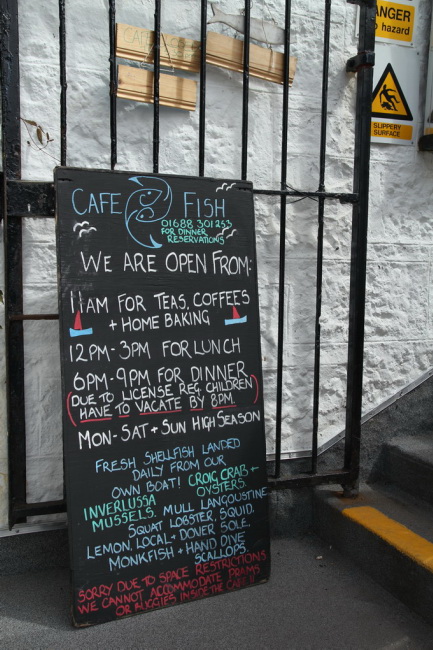 CAFE
DANGER
hazard
SLIPPERY
SURFACE
CAFE FISH
01688 301253
FOR DINNER
RESERVATIONS
WE ARE OPEN FROM:
11AM FOR TEAS, COFFEES
+ HOME BAKING
12PM-3PM FOR LUNCH
6PM-9PM FOR DINNER
(DUE TO LICENSE REG. CHILDREN
HAVE TO VACATE BY 8PM.)
MON-SAT + SUN HIGH SEASON
FRESH SHELLFISH LANDED
DAILY FROM OUR
OWN BOAT! CROIG CRAB +
OYSTERS.
INVERLUSSA
MUSSELS. MULL LANGOUSTINE
SQUAT LOBSTER, SQUID.
LEMON, LOCAL + DOVER SOLE.
MONKFISH + HAND DIVE
SCALLOPS.
SORRY DUE TO SPACE RESTRICTIONS
WE CANNOT ACCOMMODATE PRAMS
OR BUGGIES INSIDE THE CAFE